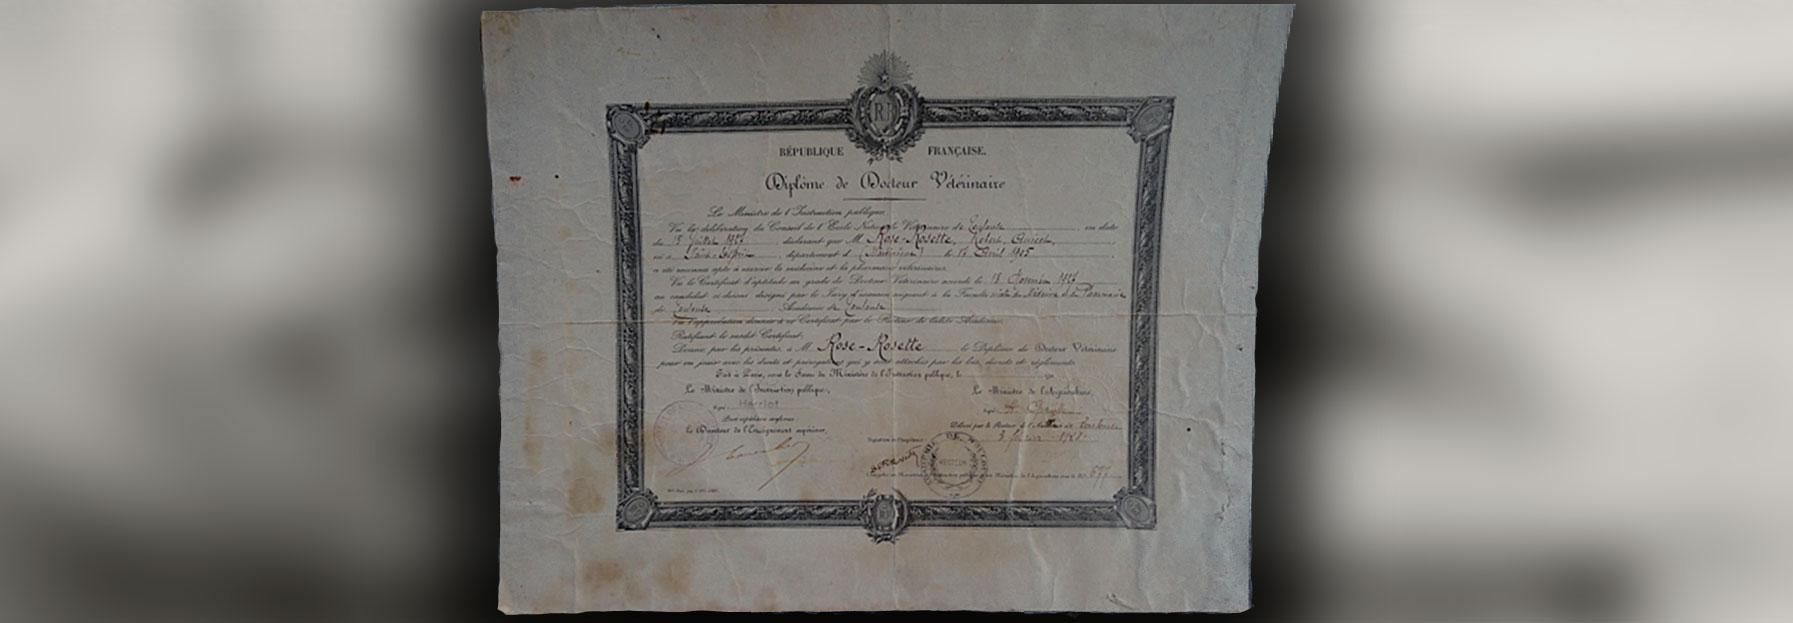 RF
RÉPUBLIQUE FRANÇAISE.
Diplôme de Docteur Vétérinaire
Le Ministre de l'Instruction publique,
Vu la délibération du Conseil de l'École Nationale Vétérinaire de Toulouse en date
du 13 Juillet déclarant que M. Rose-Rosette, Robert,
né à département d (Martinique) le Avril 1905
a été reconnu apte à exercer la médecine et la pharmacie vétérinaires.
Vu le Certificat d'aptitude au grade de Docteur Vétérinaire accordé le 18 Novembre
au candidat ci-dessus désigné par le Jury d'examen siégeant à la Faculté mixte de Médecine et de Pharmacie
de Toulouse Académie de Toulouse
Vu l'approbation donnée à ce Certificat par le Recteur de ladite Académie;
Ratifiant le susdit Certificat;
Donne, par les présentes, à M. Rose-Rosette le Diplôme de Docteur Vétérinaire
pour en jouir avec les droits et prérogatives qui y sont attachés par les lois, décrets et règlements.
Fait à Paris, sous le Sceau du Ministère de l'Instruction publique, le
Le Ministre de l'Instruction publique,
Signé: Herriot
Pour expédition conforme:
Le Directeur de l'Enseignement supérieur,
Le Ministre de l'Agriculture,
Signé:
Délivré par le Recteur de l'Académie de Toulouse
3 février
Signature de l'impétrant:
677